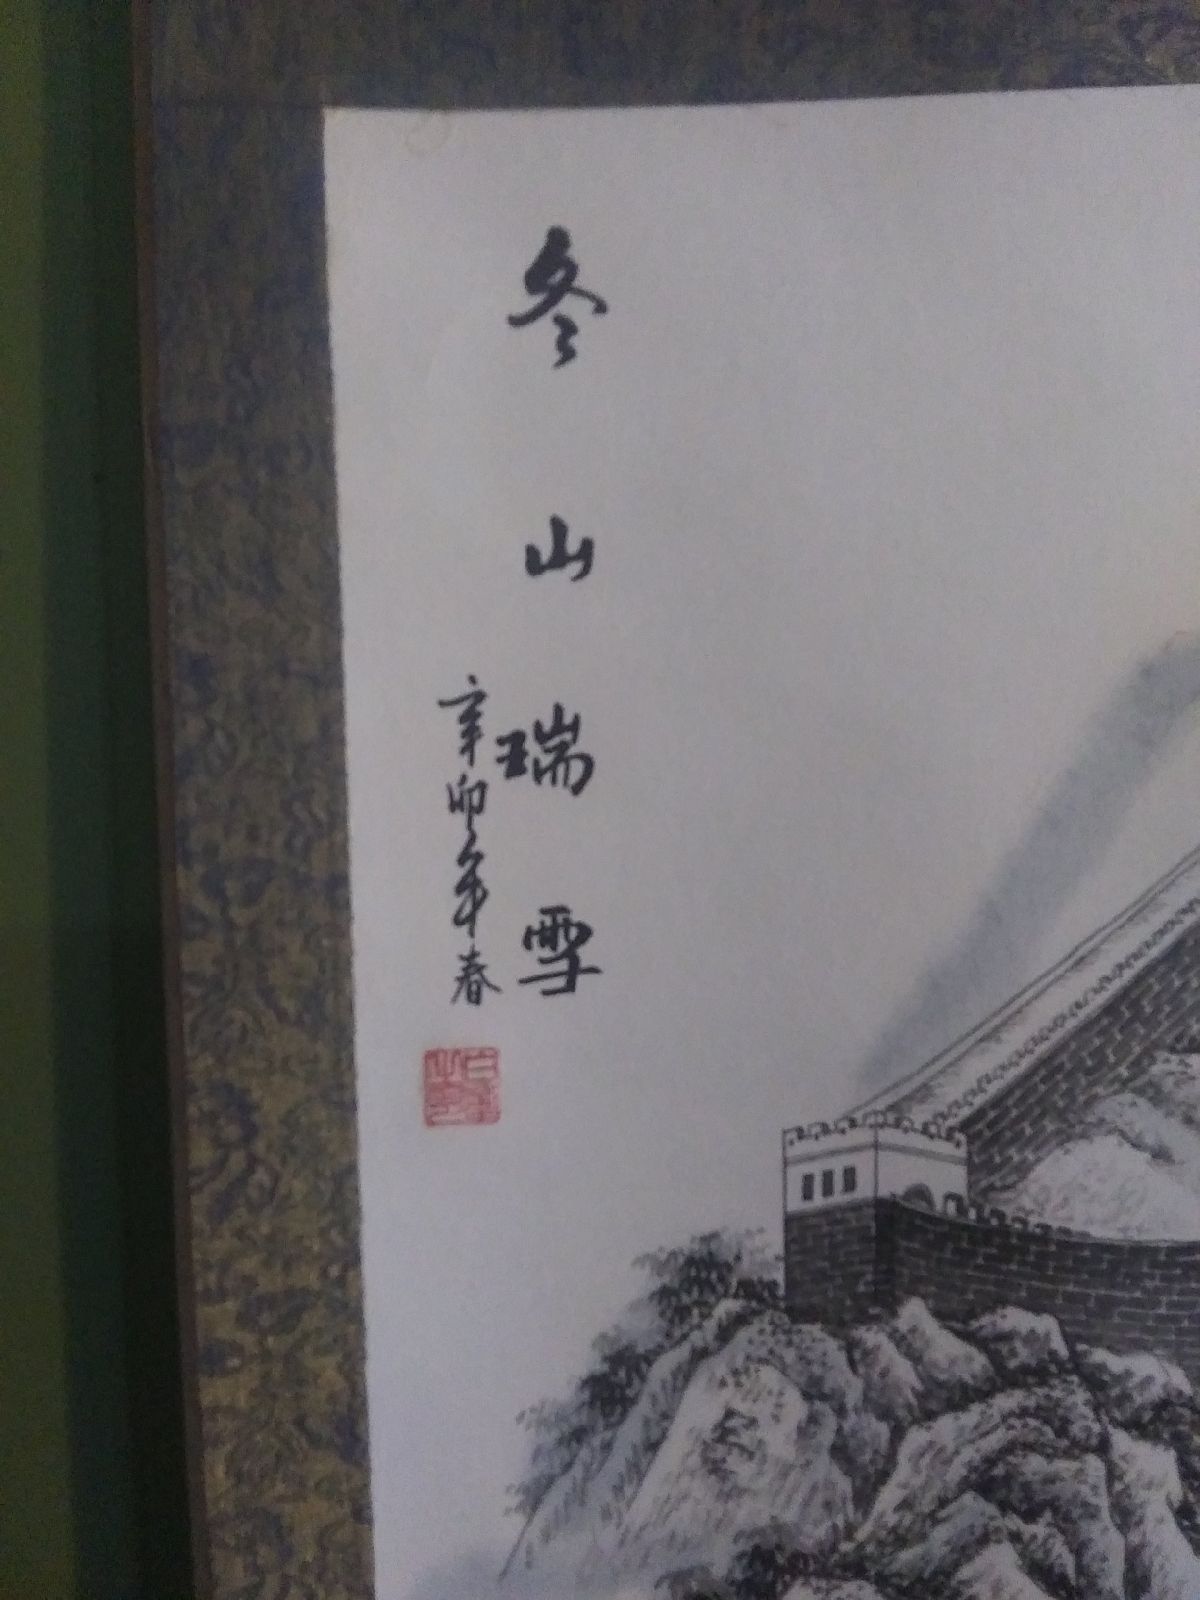 冬山瑞雪
辛卯年春